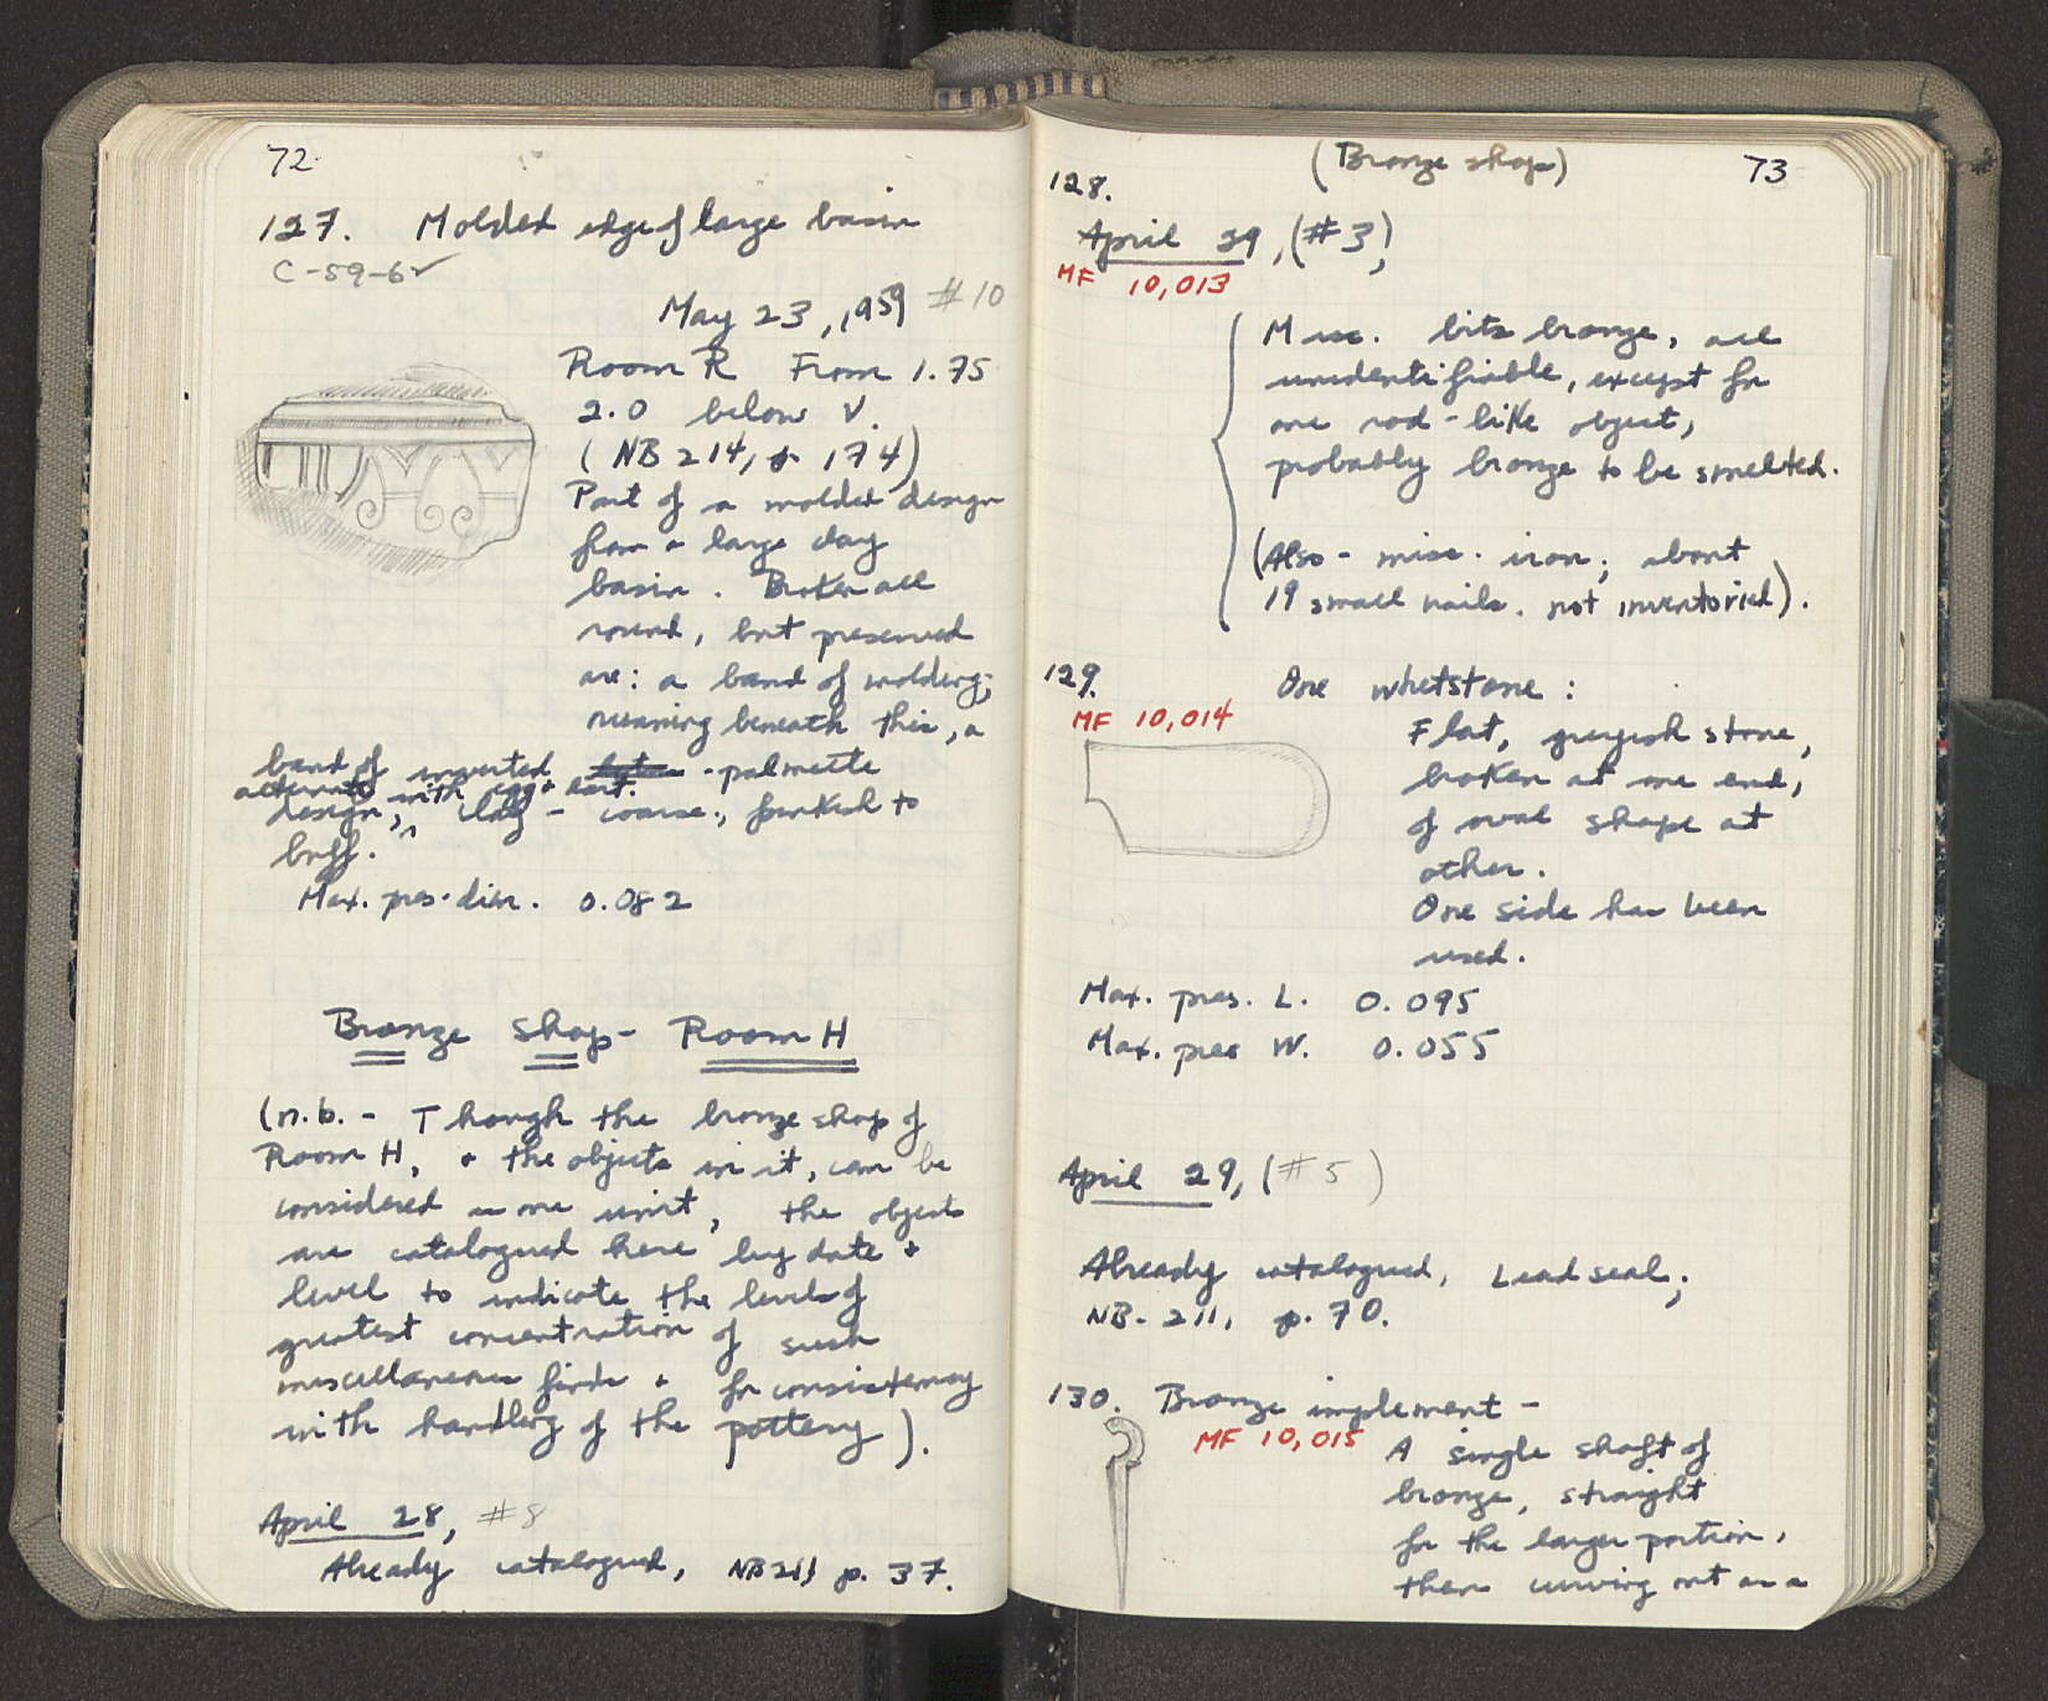 72
127. Molded edge of large basin
C-59-6 ✓
May 23, 1959 #10
Room R From 1.75
2.0 below V.
(NB 214, p. 174)
Part of a molded design
from a large clay
basin. Broken all
round, but preserved
are: a band of molding;
running beneath this, a
band of inverted -palmette
alternate with egg + dart.
design, ^ clay - coarse, pinkish to
buff.
Max. pres. dim. 0.082
Bronze Shop - Room H
(n.b. - Though the bronze shop of
Room H, + the objects in it, can be
considered as one unit, the objects
are catalogued here by date +
level to indicate the levels of
greatest concentration of such
miscellaneous finds + for consistency
with handling of the pottery).
April 28, #8
Already catalogued, NB 211 p. 37.
(Bronze shop) 73
128.
April 29, (#3)
MF 10,013
Misc. bits bronze, all
unidentifiable, except for
one rod-like object,
probably bronze to be smelted.
(Also - misc. iron; about
19 small nails. not inventoried).
129. One whetstone:
MF 10,014
Flat, greyish stone,
broken at one end,
of oval shape at
other.
One side has been
used.
Max. pres. L. 0.095
Max. pres W. 0.055
April 29, (#5)
Already catalogued, Lead seal;
NB-211, p. 70.
130. Bronze implement -
MF 10,015 A single shaft of
bronze, straight
for the larger portion,
then curving out as a